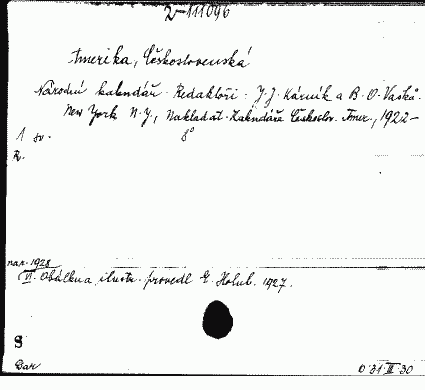 2-111096
Amerika, Československá
Národní kalendář. Redaktoři: J. J. Kárník a B. O. Vaška.
New York N.Y., Nakladat. Kalendáře Českoslov. Amer., 1922-
1 sv. 8°
R.
nar. 1928
VI. Obálku a ilustr. provedl E. Holub. 1927.
S
Dar O 31 III 30